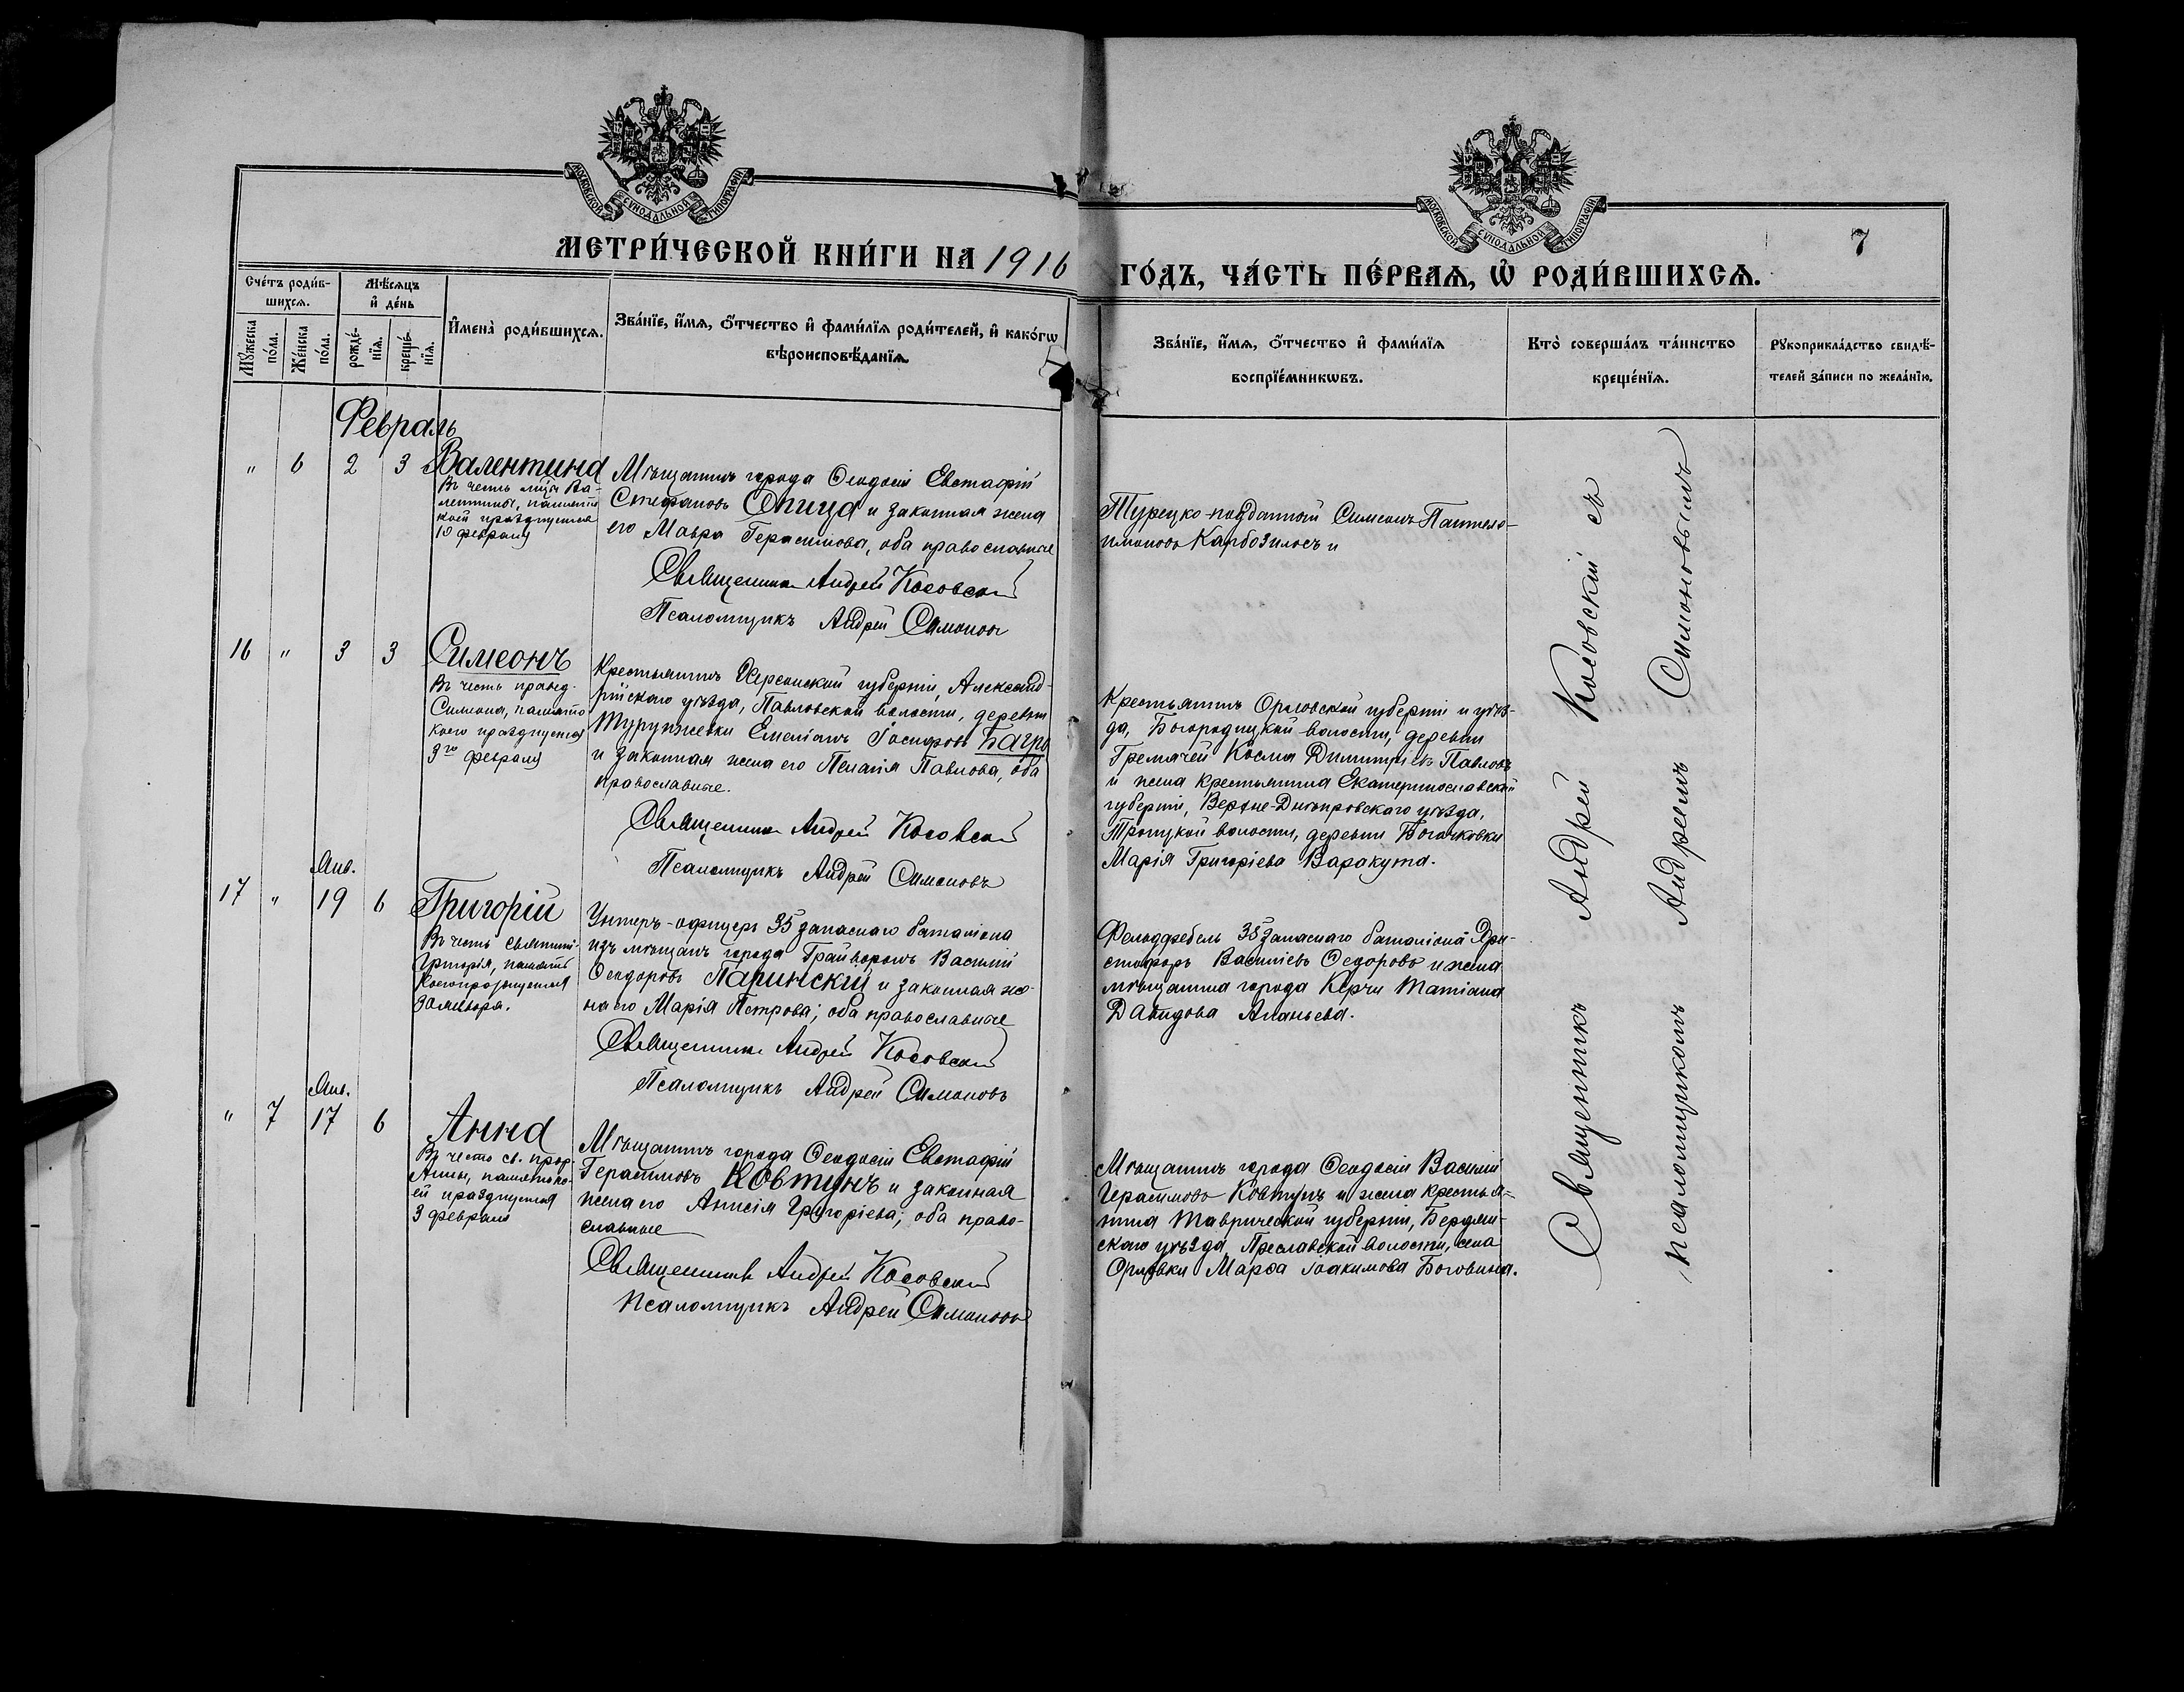 МОСКОВСКОЙ СѴНОДАЛЬНОЙ ТИПОГРАФІИ
МОСКОВСКОЙ СѴНОДАЛЬНОЙ ТИПОГРАФІИ
7
МЕТРИ́ЧЕСКОЙ КНИ́ГИ НА 1916
ГО́ДЪ, ЧА́СТЬ ПЕ́РВАѦ, Ѡ҆ РОДИ́ВШИХСѦ.
Сче́тъ роди́в-
шихсѧ.
Мꙋ́жеска
по́ла.
Же́нска
по́ла.
Мѣ́сѧцъ
и҆ де́нь
рожде́-
нїѧ.
креще́-
нїѧ.
И҆мена̀ роди́вшихсѧ.
Зва́нїе, и҆́мѧ, ѻ҆́тчество и҆ фами́лїѧ роди́телей, и҆ како́гѡ
вѣроисповѣ́данїѧ.
Зва́нїе, и҆́мѧ, ѻ҆́тчество и҆ фами́лїѧ
воспрїе́мникѡвъ.
Кто̀ соверша́лъ та́инство
креще́нїѧ.
Рꙋкоприкла́дство свидѣ́-
телей за́писи по жела́нїю.
Февраль
" 6 2 3 Валентина
Въ честь мцы Ва-
лентины, память
коей празднуется
10 февраля
Мѣщанинъ города Ѳеодосіи Евстафій
Стефановъ Спица и законная жена
его Мавра Герасимова, оба православные
Священникъ Андрей Косовский
Псаломщикъ Андрей Симоновъ
Турецко-подданный Симеонъ Пантеле-
имоновъ Карбозилосъ и
16 " 3 3 Симеонъ
Въ честь правед.
Симеона, память
коего празднуется
3го февраля
Крестьянинъ Херсонской губерніи, Александ-
рійскаго уѣзда, Павловской волости, деревни
Емеліанъ Іосифовъ Багро
и законная жена его Пелагія Павлова, оба
православные.
Священникъ Андрей Косовский
Псаломщикъ Андрей Симоновъ
Крестьянинъ Орловской губерніи и уѣз-
да, Богородицкой волости, деревни
Гремячей Косма Димитріевъ Павловъ
и жена крестьянина Екатеринославской
губерніи, Верхне-Днѣпровскаго уѣзда,
Троицкой волости, деревни Богачковки
Марія Григоріева Варакута.
Янв.
17 " 19 6 Григорій
Въ честь святит.
Григорія, память
коего празднуется
30 января.
Унтеръ-офицеръ 35 запаснаго баталіона
изъ мѣщанъ города Грайворонъ Василій
Ѳеодоровъ Паринскій и законная же-
на его Марія Петрова; оба православные
Священникъ Андрей Косовский
Псаломщикъ Андрей Симоновъ
Фельдфебель 35 запаснаго баталіона Хри-
стофоръ Василіевъ Ѳедоровъ и жена
мѣщанина города Керчи Татіана
Давидова Ананьева.
Янв.
" 7 17 6 Анна
Въ честь св. прор.
Анны, память ко-
ей празднуется
3 февраля
Мѣщанинъ города Ѳеодосіи Евстафій
Герасимовъ Ковтунъ и законная
жена его Анисія Григоріева; оба право-
славные
Священникъ Андрей Косовский
Псаломщикъ Андрей Симоновъ
Мѣщанинъ города Ѳеодосіи Василій
Герасимовъ Ковтунъ и жена крестья-
нина Таврической губерніи, Бердян-
скаго уѣзда, Преславской волости, села
Орловки Марѳа Іоакимова Боговина.
Священникъ Андрей Косовскій съ
псаломщикомъ Андреемъ Симоновымъ